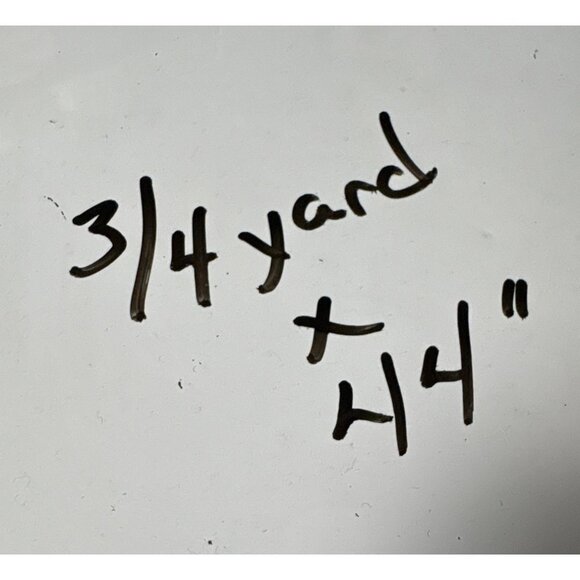 3/4 yard
x
44"